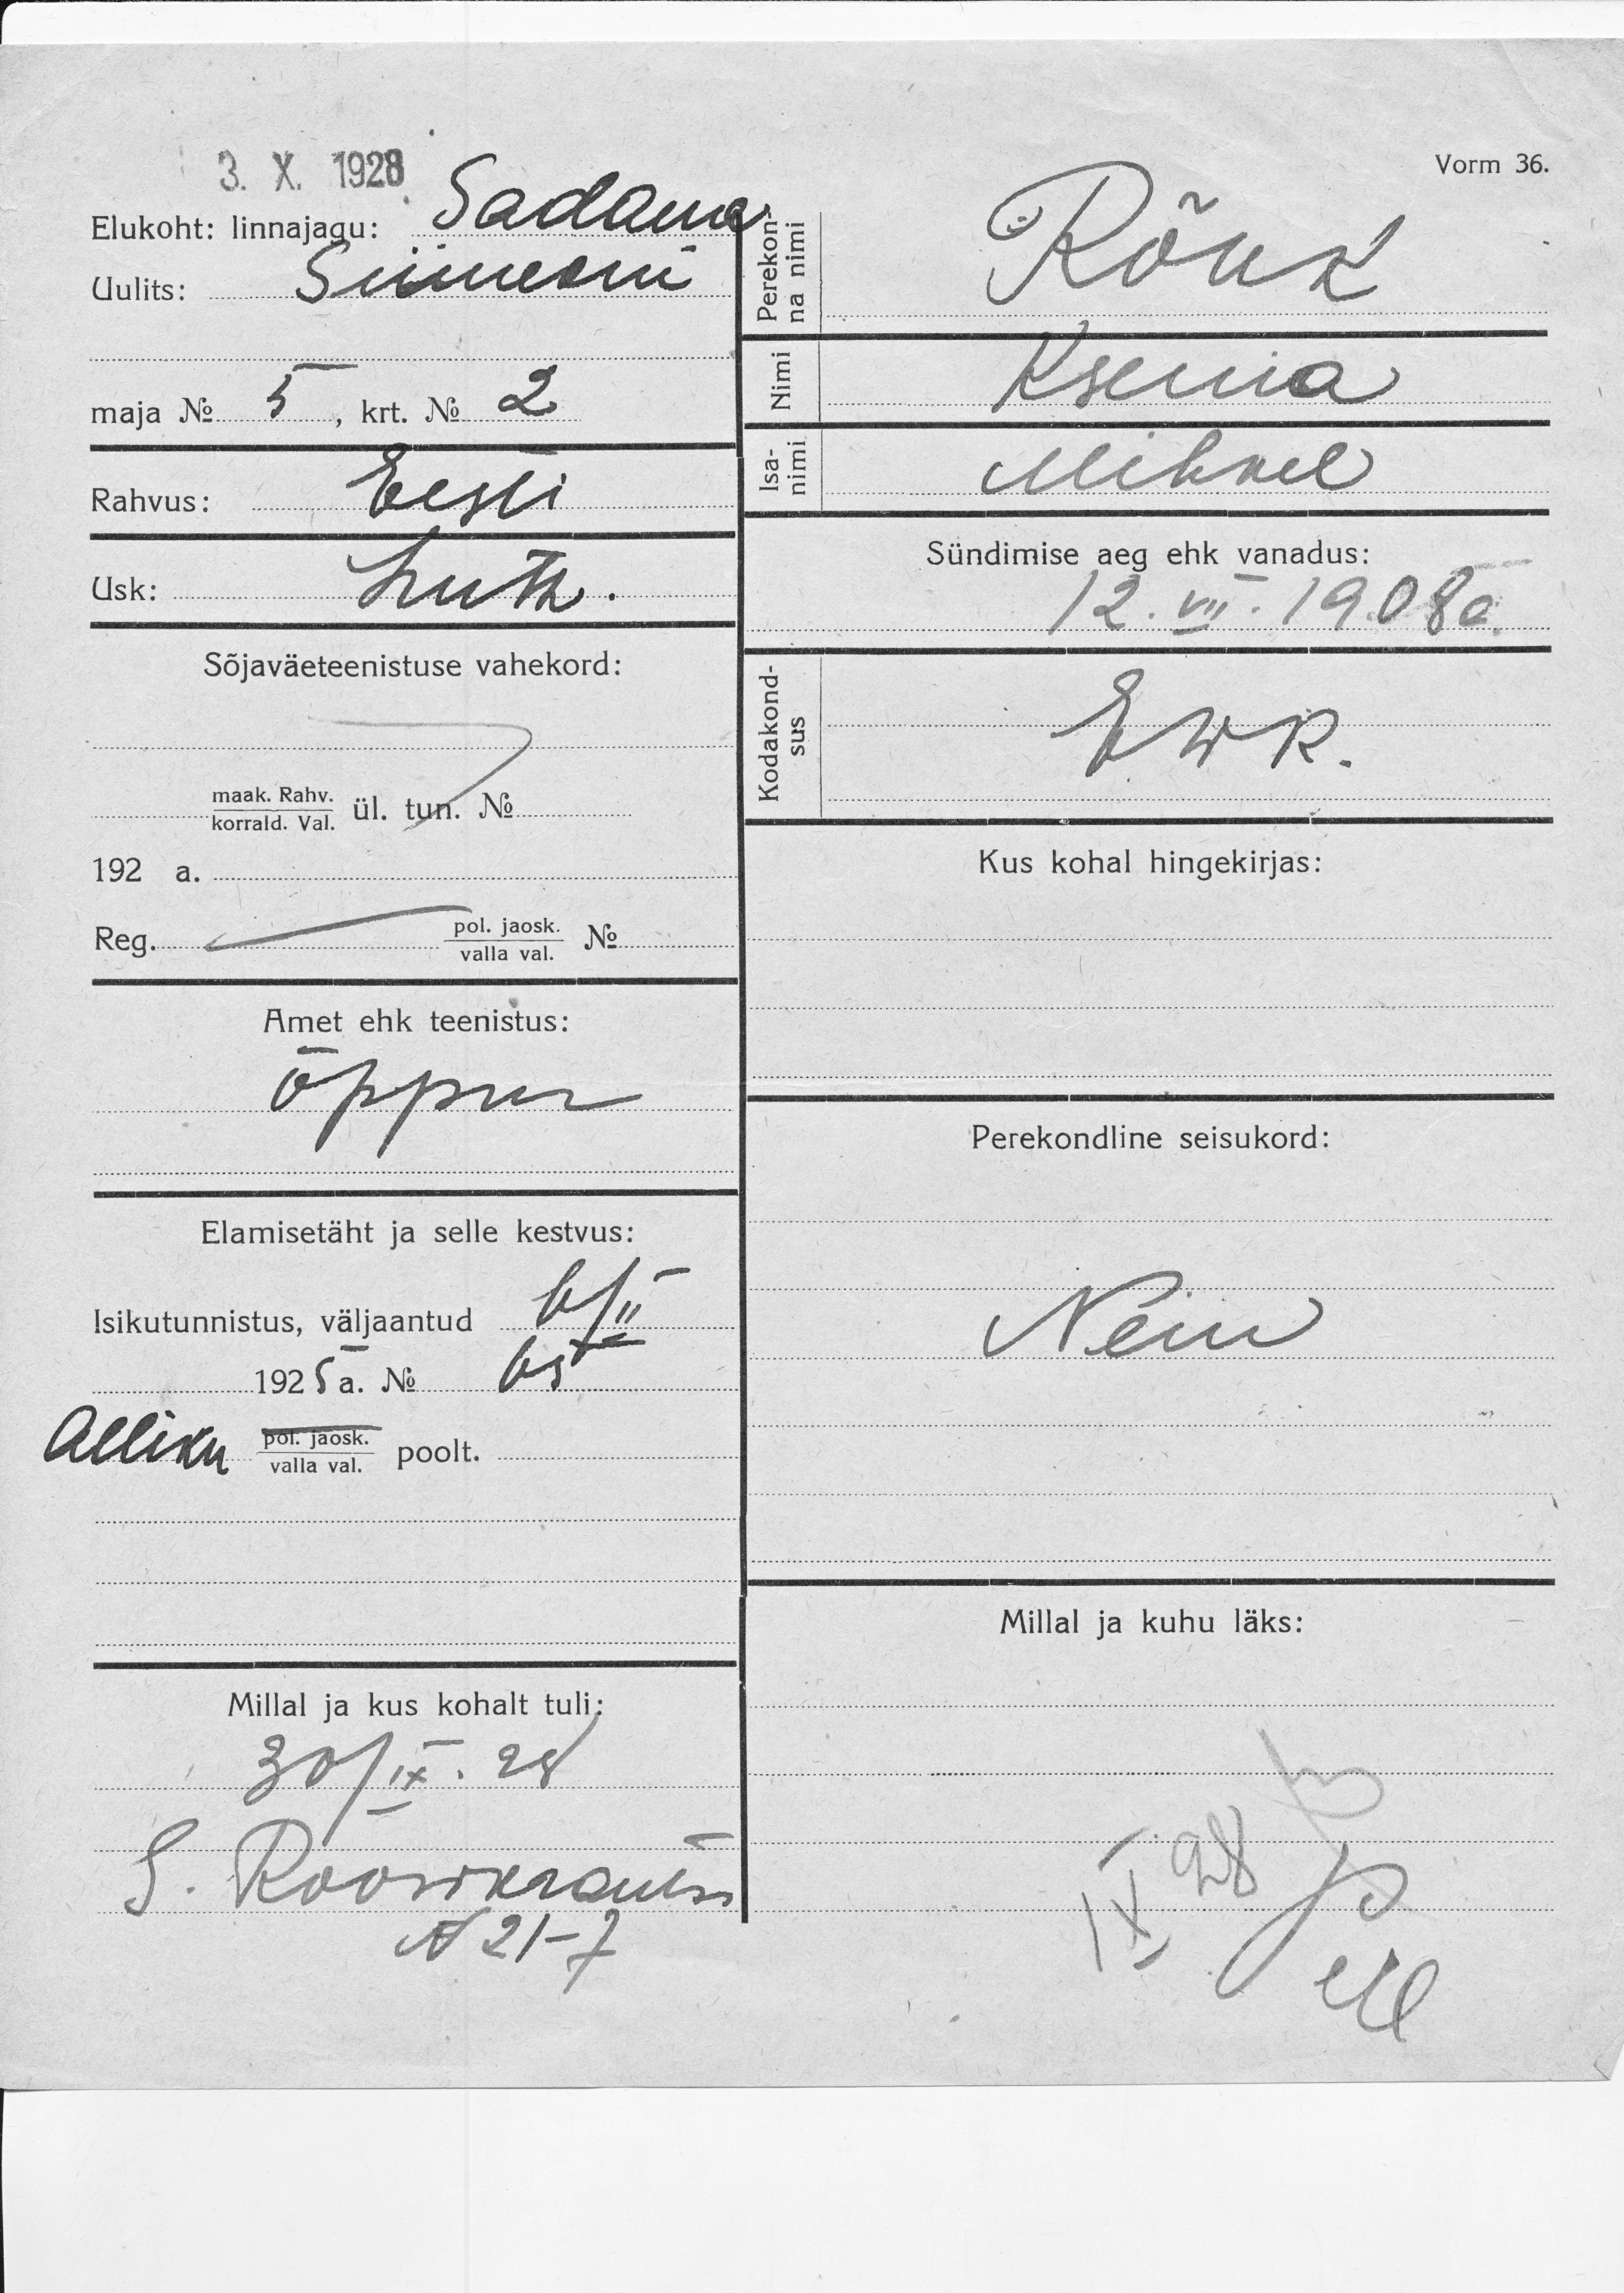 3. X. 1928
Vorm 36.
Elukoht: linnajagu: Sadama
Uulits: Siimeoni
maja № 5, krt. № 2
Rahvus: Eesti
Usk: Luth.
Sõjaväeteenistuse vahekord:
maak. Rahv.
korrald. Val. ül. tun. №
192 a.
Reg. pol. jaosk.
valla val. №
Amet ehk teenistus:
õppur
Elamisetäht ja selle kestvus:
Isikutunnistus, väljaantud 6/II
1925 a. № 65
Alliku pol. jaosk.
valla val. poolt.
Millal ja kus kohalt tuli:
30/IX. 28
S. Roosikrantsi
№ 21-7
Perekon-
na nimi Rõuk
Nimi Ksenia
Isa-
nimi Mihkel
Sündimise aeg ehk vanadus:
12. VII. 1908 a.
Kodakond-
sus EWR.
Kus kohal hingekirjas:
Perekondline seisukord:
Neiu
Millal ja kuhu läks:
IX 28